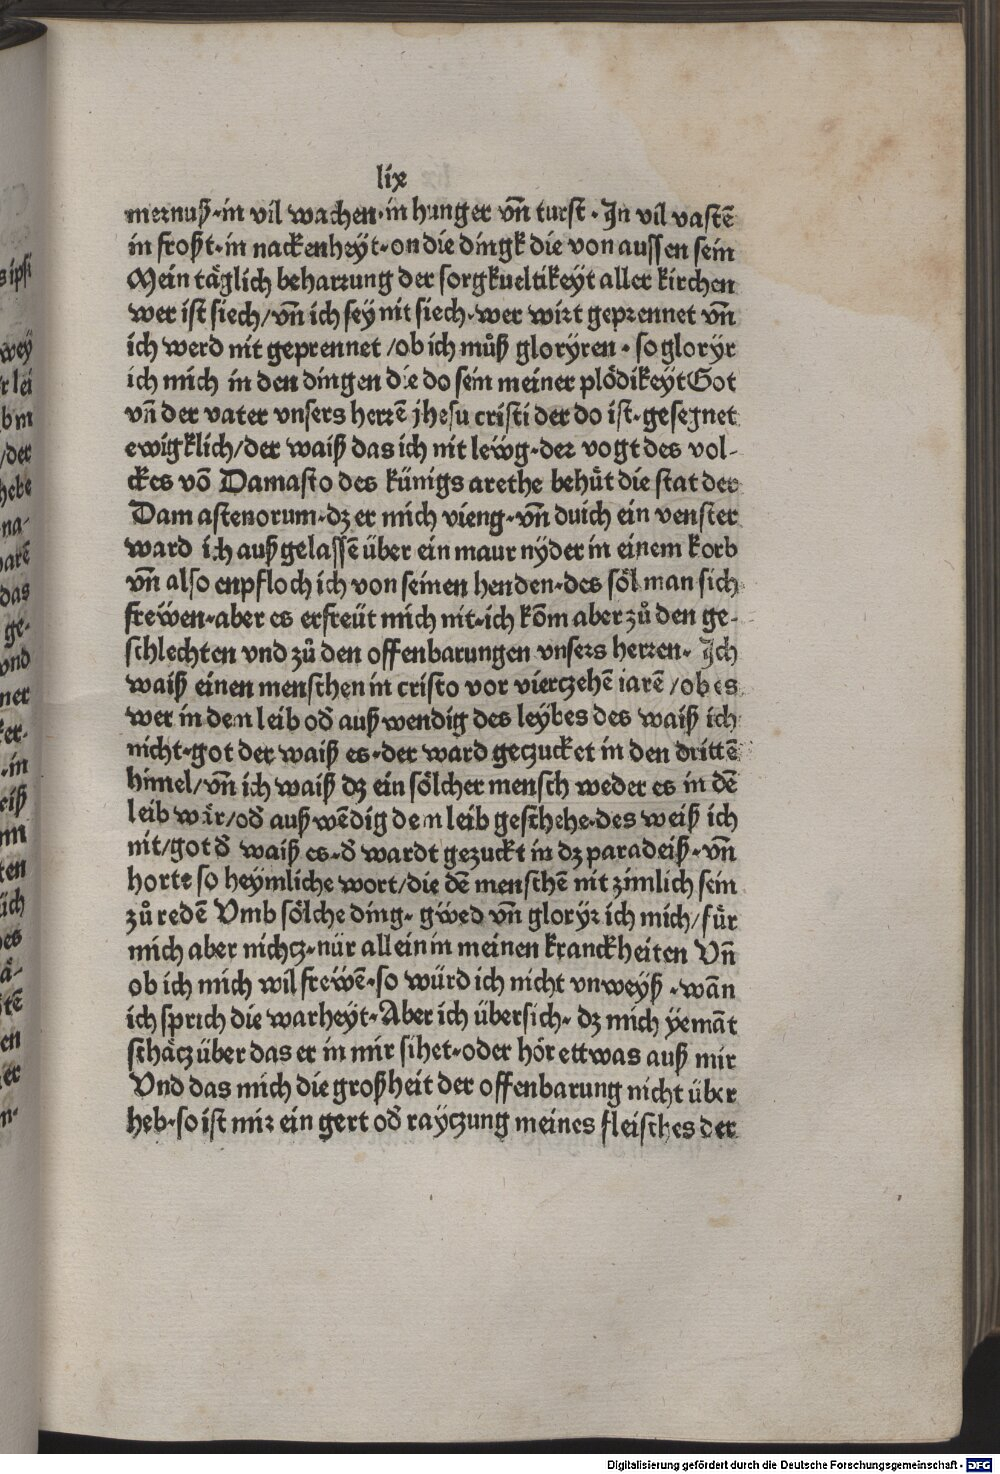 lix
mernuß·in vil wachen·in hunger vñ turst·In vil vastē
in froßt·in nackenheÿt·on die dingk die von aussen sein
Mein täglich beharrung der sorgkueltikeÿt aller kirchen
wer ist siech/vñ ich sey nit siech·wer wirt geprennet vñ
ich werd nit geprennet/ob ich můß glorÿren·so glorÿr
ich mich in den dingen die do sein meiner plödikeÿt Got
vñ der vater vnsers herrē jhesu cristi der do ist·gesegnet
ewigklich/der waiß das ich nit leẅg·der vogt des vol-
ckes võ Damasto des künigs arethe behüt die stat der
Damastenorum·dz er mich vieng·vñ duich ein venster
ward ich außgelassē über ein maur nÿder in einem korb
vñ also enpfloch ich von seinen henden·des söl man sich
freẅen·aber es erfreüt mich nit·ich kõm aber zů den ge-
schlechten vnd zů den offenbarungen vnsers herren·Ich
waiß einen menschen in cristo vor vierczehē iarē/ob es
wer in dem leib oď außwendig des leÿbes des waiß ich
nicht·got der waiß es·der ward geczucket in den drittē
himel/vñ ich waiß dz ein sölcher mensch weder es in dē
leib wär/oď außwēdig dem leib geschehe·des weiß ich
nit/got ď waiß es·ď wardt gezuckt in dz paradeiß·vñ
horte so heÿmliche wort/die dē menschē nit zimlich sein
zů redē Vmb sölche ding·gẅed vñ glorÿr ich mich/für
mich aber nichcz·nür allein in meinen kranckheiten Vñ
ob ich mich wil freẅē·so würd ich nicht vnweÿß·wãn
ich sprich die warheÿt·Aber ich übersich·dz mich ÿemãt
schäcz über das er in mir sihet·oder hör ettwas auß mir
Vnd das mich die großheit der offenbarung nicht über
heb·so ist mir ein gert oď raÿczung meines fleisches der
s ipsi
wey
r lei
bm
/der
hebe
na-
arē
das
ge-
vnd
ner
ker-
·in
eiß
ten
üch
es
ä-
tē
en
er
n·
Digitalisierung gefördert durch die Deutsche Forschungsgemeinschaft - DFG